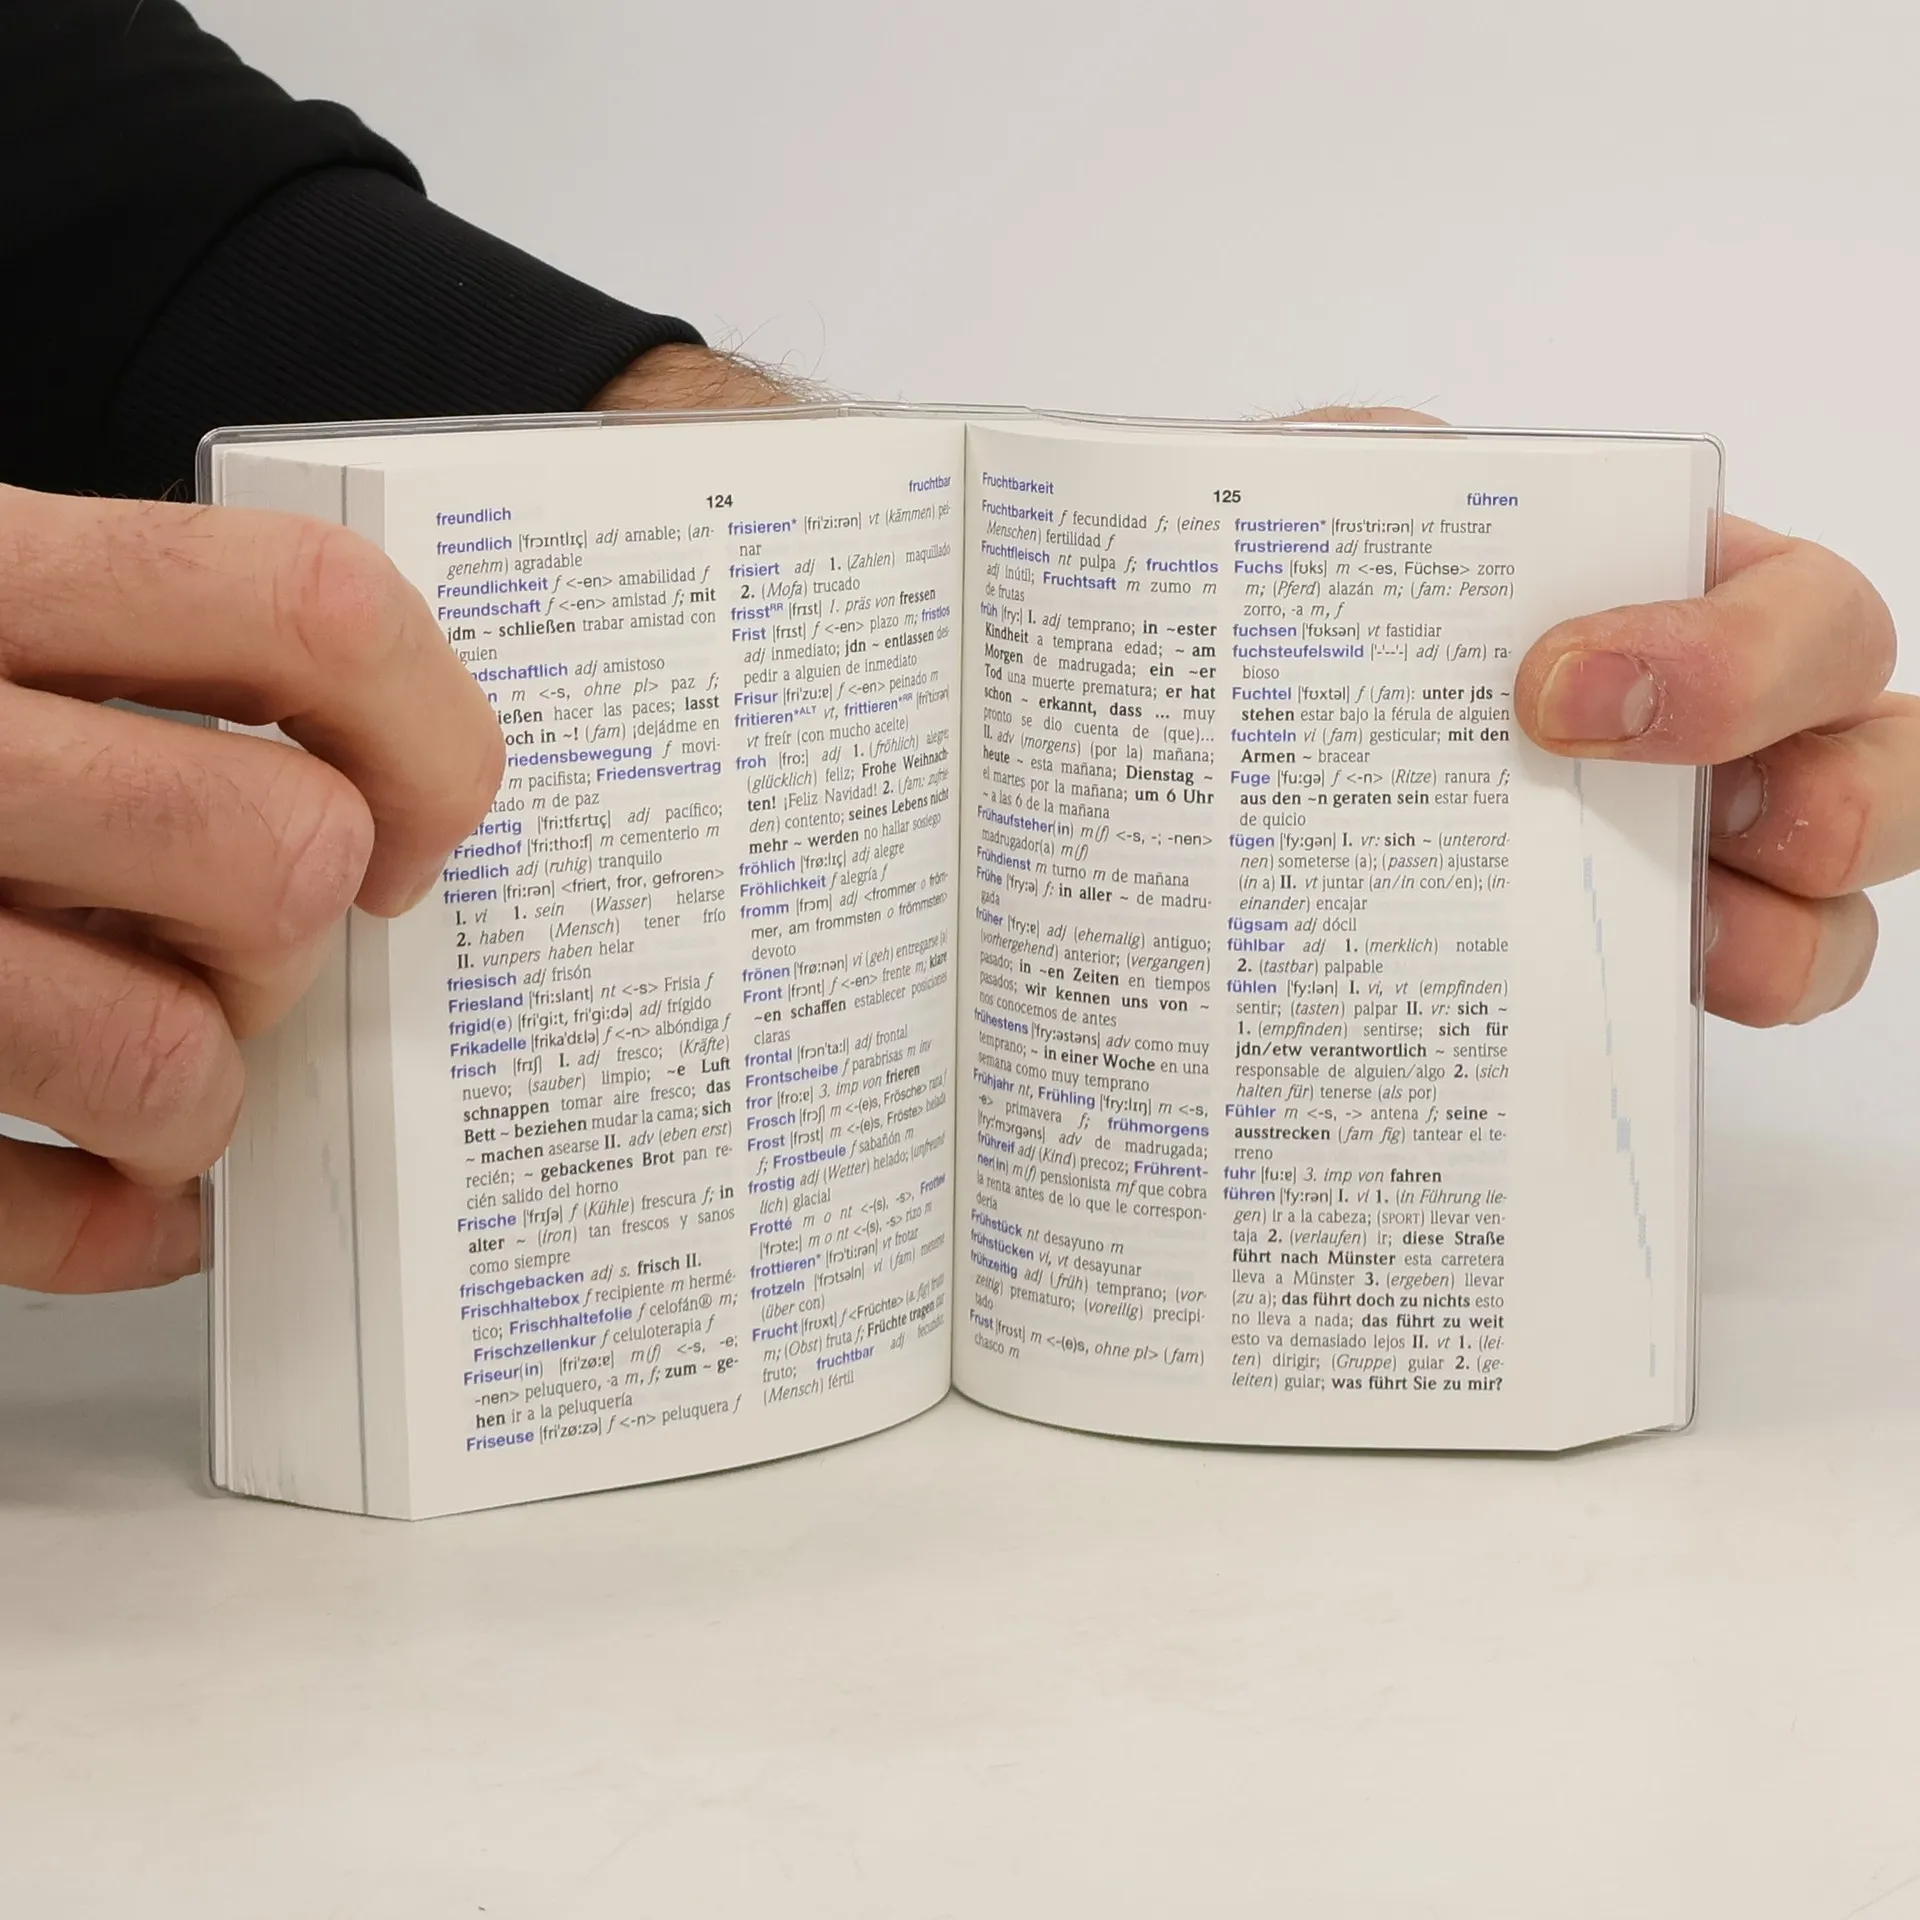 freundlich
124
fruchtbar
freundlich |'frɔɪntlɪç| adj amable; (an-
genehm) agradable
Freundlichkeit f <-en> amabilidad f
Freundschaft f <-en> amistad f; mit
jdm ~ schließen trabar amistad con
lguien
ndschaftlich adj amistoso
n m <-s, ohne pl> paz f;
ießen hacer las paces; lasst
och in ~! (fam) ¡dejádme en
riedensbewegung f movi-
m pacifista; Friedensvertrag
tado m de paz
fertig |'fri:tfɛrtɪç| adj pacífico;
Friedhof |'fri:tho:f| m cementerio m
friedlich adj (ruhig) tranquilo
frieren |fri:rən| <friert, fror, gefroren>
I. vi 1. sein (Wasser) helarse
2. haben (Mensch) tener frío
II. vunpers haben helar
friesisch adj frisón
Friesland |'fri:slant| nt <-s> Frisia f
frigid(e) |fri'gi:t, fri'gi:də| adj frígido
Frikadelle |frika'dɛlə| f <-n> albóndiga f
frisch |frɪʃ| I. adj fresco; (Kräfte)
nuevo; (sauber) limpio; ~e Luft
schnappen tomar aire fresco; das
Bett ~ beziehen mudar la cama; sich
~ machen asearse II. adv (eben erst)
recién; ~ gebackenes Brot pan re-
cién salido del horno
Frische |'frɪʃə| f (Kühle) frescura f; in
alter ~ (iron) tan frescos y sanos
como siempre
frischgebacken adj s. frisch II.
Frischhaltebox f recipiente m hermé-
tico; Frischhaltefolie f celofán® m;
Frischzellenkur f celuloterapia f
Friseur(in) |fri'zø:ɐ| m(f) <-s, -e;
-nen> peluquero, -a m, f; zum ~ ge-
hen ir a la peluquería
Friseuse |fri'zø:zə| f <-n> peluquera f
frisieren* |fri'zi:rən| vt (kämmen) pei-
nar
frisiert adj 1. (Zahlen) maquillado
2. (Mofa) trucado
frisstRR |frɪst| 1. präs von fressen
Frist |frɪst| f <-en> plazo m; fristlos
adj inmediato; jdn ~ entlassen des-
pedir a alguien de inmediato
Frisur |fri'zu:ɐ| f <-en> peinado m
fritieren*ALT vt, frittieren*RR |fri'ti:rən|
vt freír (con mucho aceite)
froh |fro:| adj 1. (fröhlich) alegre;
(glücklich) feliz; Frohe Weihnach-
ten! ¡Feliz Navidad! 2. (fam: zufrie-
den) contento; seines Lebens nicht
mehr ~ werden no hallar sosiego
fröhlich |'frø:lɪç| adj alegre
Fröhlichkeit f alegría f
fromm |frɔm| adj <frommer o fröm-
mer, am frommsten o frömmsten>
devoto
frönen |'frø:nən| vi (geh) entregarse (a)
Front |frɔnt| f <-en> frente m; klare
~en schaffen establecer posiciones
claras
frontal |frɔn'ta:l| adj frontal
Frontscheibe f parabrisas m inv
fror |fro:ɐ| 3. imp von frieren
Frosch |frɔʃ| m <-(e)s, Frösche> rana f
Frost |frɔst| m <-(e)s, Fröste> helada
f; Frostbeule f sabañón m
frostig adj (Wetter) helado; (unfreund-
lich) glacial
Frotté m o nt <-(s), -s>, Frottee
|'frɔte:| m o nt <-(s), -s> rizo m
frottieren* |frɔ'ti:rən| vt frotar
frotzeln |'frɔtsəln| vi (fam) meterse
(über con)
Frucht |frʊxt| f <Früchte> (a. fig) fruto
m; (Obst) fruta f; Früchte tragen dar
fruto; fruchtbar adj fecundo;
(Mensch) fértil
Fruchtbarkeit
125
führen
Fruchtbarkeit f fecundidad f; (eines
Menschen) fertilidad f
Fruchtfleisch nt pulpa f; fruchtlos
adj inútil; Fruchtsaft m zumo m
de frutas
früh |fry:| I. adj temprano; in ~ester
Kindheit a temprana edad; ~ am
Morgen de madrugada; ein ~er
Tod una muerte prematura; er hat
schon ~ erkannt, dass ... muy
pronto se dio cuenta de (que)...
II. adv (morgens) (por la) mañana;
heute ~ esta mañana; Dienstag ~
el martes por la mañana; um 6 Uhr
~ a las 6 de la mañana
Frühaufsteher(in) m(f) <-s, -; -nen>
madrugador(a) m(f)
Frühdienst m turno m de mañana
Frühe |'fry:ə| f: in aller ~ de madru-
gada
früher |'fry:ɐ| adj (ehemalig) antiguo;
(vorhergehend) anterior; (vergangen)
pasado; in ~en Zeiten en tiempos
pasados; wir kennen uns von ~
nos conocemos de antes
frühestens |'fry:əstəns| adv como muy
temprano; ~ in einer Woche en una
semana como muy temprano
Frühjahr nt, Frühling |'fry:lɪŋ| m <-s,
-e> primavera f; frühmorgens
|fry:'mɔrgəns| adv de madrugada;
frühreif adj (Kind) precoz; Frührent-
ner(in) m(f) pensionista mf que cobra
la renta antes de lo que le correspon-
dería
Frühstück nt desayuno m
frühstücken vi, vt desayunar
frühzeitig adj (früh) temprano; (vor-
zeitig) prematuro; (voreilig) precipi-
tado
Frust |frʊst| m <-(e)s, ohne pl> (fam)
chasco m
frustrieren* |frʊs'tri:rən| vt frustrar
frustrierend adj frustrante
Fuchs |fʊks| m <-es, Füchse> zorro
m; (Pferd) alazán m; (fam: Person)
zorro, -a m, f
fuchsen |'fʊksən| vt fastidiar
fuchsteufelswild |'-'--'-| adj (fam) ra-
bioso
Fuchtel |'fʊxtəl| f (fam): unter jds ~
stehen estar bajo la férula de alguien
fuchteln vi (fam) gesticular; mit den
Armen ~ bracear
Fuge |'fu:gə| f <-n> (Ritze) ranura f;
aus den ~n geraten sein estar fuera
de quicio
fügen |'fy:gən| I. vr: sich ~ (unterord-
nen) someterse (a); (passen) ajustarse
(in a) II. vt juntar (an/in con/en); (in-
einander) encajar
fügsam adj dócil
fühlbar adj 1. (merklich) notable
2. (tastbar) palpable
fühlen |'fy:lən| I. vi, vt (empfinden)
sentir; (tasten) palpar II. vr: sich ~
1. (empfinden) sentirse; sich für
jdn/etw verantwortlich ~ sentirse
responsable de alguien/algo 2. (sich
halten für) tenerse (als por)
Fühler m <-s, -> antena f; seine ~
ausstrecken (fam fig) tantear el te-
rreno
fuhr |fu:ɐ| 3. imp von fahren
führen |'fy:rən| I. vi 1. (in Führung lie-
gen) ir a la cabeza; (SPORT) llevar ven-
taja 2. (verlaufen) ir; diese Straße
führt nach Münster esta carretera
lleva a Münster 3. (ergeben) llevar
(zu a); das führt doch zu nichts esto
no lleva a nada; das führt zu weit
esto va demasiado lejos II. vt 1. (lei-
ten) dirigir; (Gruppe) guiar 2. (ge-
leiten) guiar; was führt Sie zu mir?